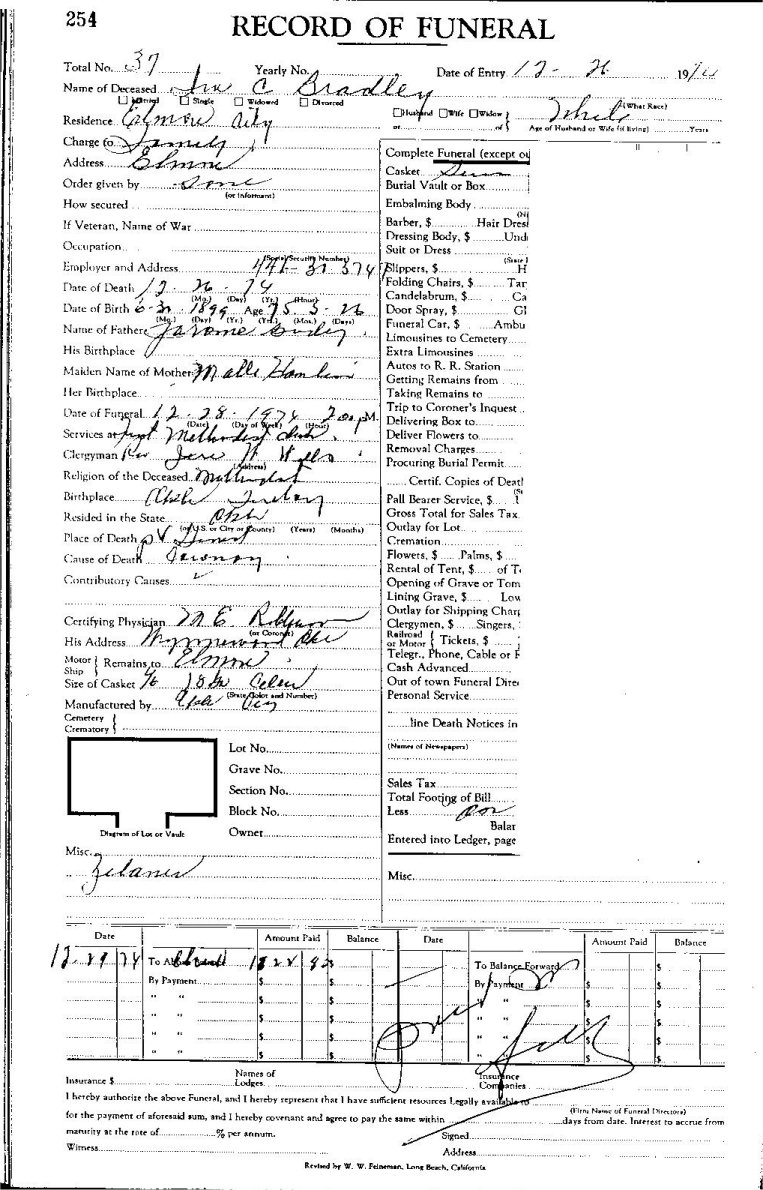 254
RECORD OF FUNERAL
Total No. 37 Yearly No. Date of Entry 12- 26 1974
Name of Deceased Ira C Bradley
Married Single Widowed Divorced
Husband Wife Widow White (What Race)
or of Age of Husband or Wife (if living) Years
Residence Elmore City
Charge to Family
Address Elmore
Order given by Same
(or Informant)
How secured
If Veteran, Name of War
Occupation
(Social Security Number)
Employer and Address
Date of Death 12- 26 - 74
(Mo.) (Day) (Yr.) (Hour)
Date of Birth 1899 Age 75 5 - 26
(Mo.) (Day) (Yr.) (Yrs.) (Mos.) (Days)
Name of Father Bradley
His Birthplace
Maiden Name of Mother
Her Birthplace
Date of Funeral 12 - 28 - 1974 2:00 P M.
(Date) (Day of Week) (Hour)
Services at First Methodist Church
Clergyman Rev W
(Address)
Religion of the Deceased Methodist
Birthplace
Resided in the State Okla
(or U.S. or City or County) (Years) (Months)
Place of Death P V
Cause of Death Coronary
Contributory Causes
Certifying Physician M E
(or Coroner)
His Address Wynnewood Okla
Motor
Ship
Remains to Elmore
Size of Casket 6/6 18 Ga
(State Color and Number)
Manufactured by Okla
Cemetery
Crematory
Lot No.
Grave No.
Section No.
Block No.
Owner
Diagram of Lot or Vault
Misc.
Complete Funeral (except ou
Casket
Burial Vault or Box
Embalming Body
Barber, $ Hair Dres
Dressing Body, $ Und
Suit or Dress
(State
Slippers, $ H
Folding Chairs, $ Tar
Candelabrum, $ Ca
Door Spray, $ Gl
Funeral Car, $ Ambu
Limousines to Cemetery
Extra Limousines
Autos to R. R. Station
Getting Remains from
Taking Remains to
Trip to Coroner's Inquest
Delivering Box to
Deliver Flowers to
Removal Charges
Procuring Burial Permit
Certif. Copies of Deat
Pall Bearer Service, $
Gross Total for Sales Tax
Outlay for Lot
Cremation
Flowers, $ Palms, $
Rental of Tent, $ of T
Opening of Grave or Tom
Lining Grave, $ Low
Outlay for Shipping Char
Clergymen, $ Singers,
Railroad
or Motor
Tickets, $
Telegr., Phone, Cable or
Cash Advanced
Out of town Funeral Dire
Personal Service
line Death Notices in
(Names of Newspapers)
Sales Tax
Total Footing of Bill
Less
Balar
Entered into Ledger, page
Misc.
Date Amount Paid Balance Date Amount Paid Balance
12-29 74 To A
By Payment $ $
" " $ $
" " $ $
" " $ $
" " $ $
To Balance Forward $
By Payment $ $
" " $ $
" " $ $
" " $ $
" " $ $
Insurance $ Names of Lodges Insurance Companies
I hereby authorize the above Funeral, and I hereby represent that I have sufficient resources Legally available to
(Firm Name of Funeral Directors)
for the payment of aforesaid sum, and I hereby covenant and agree to pay the same within days from date. Interest to accrue from
maturity at the rate of % per annum. Signed
Witness Address
Revised by W. W. Feineman, Long Beach, California